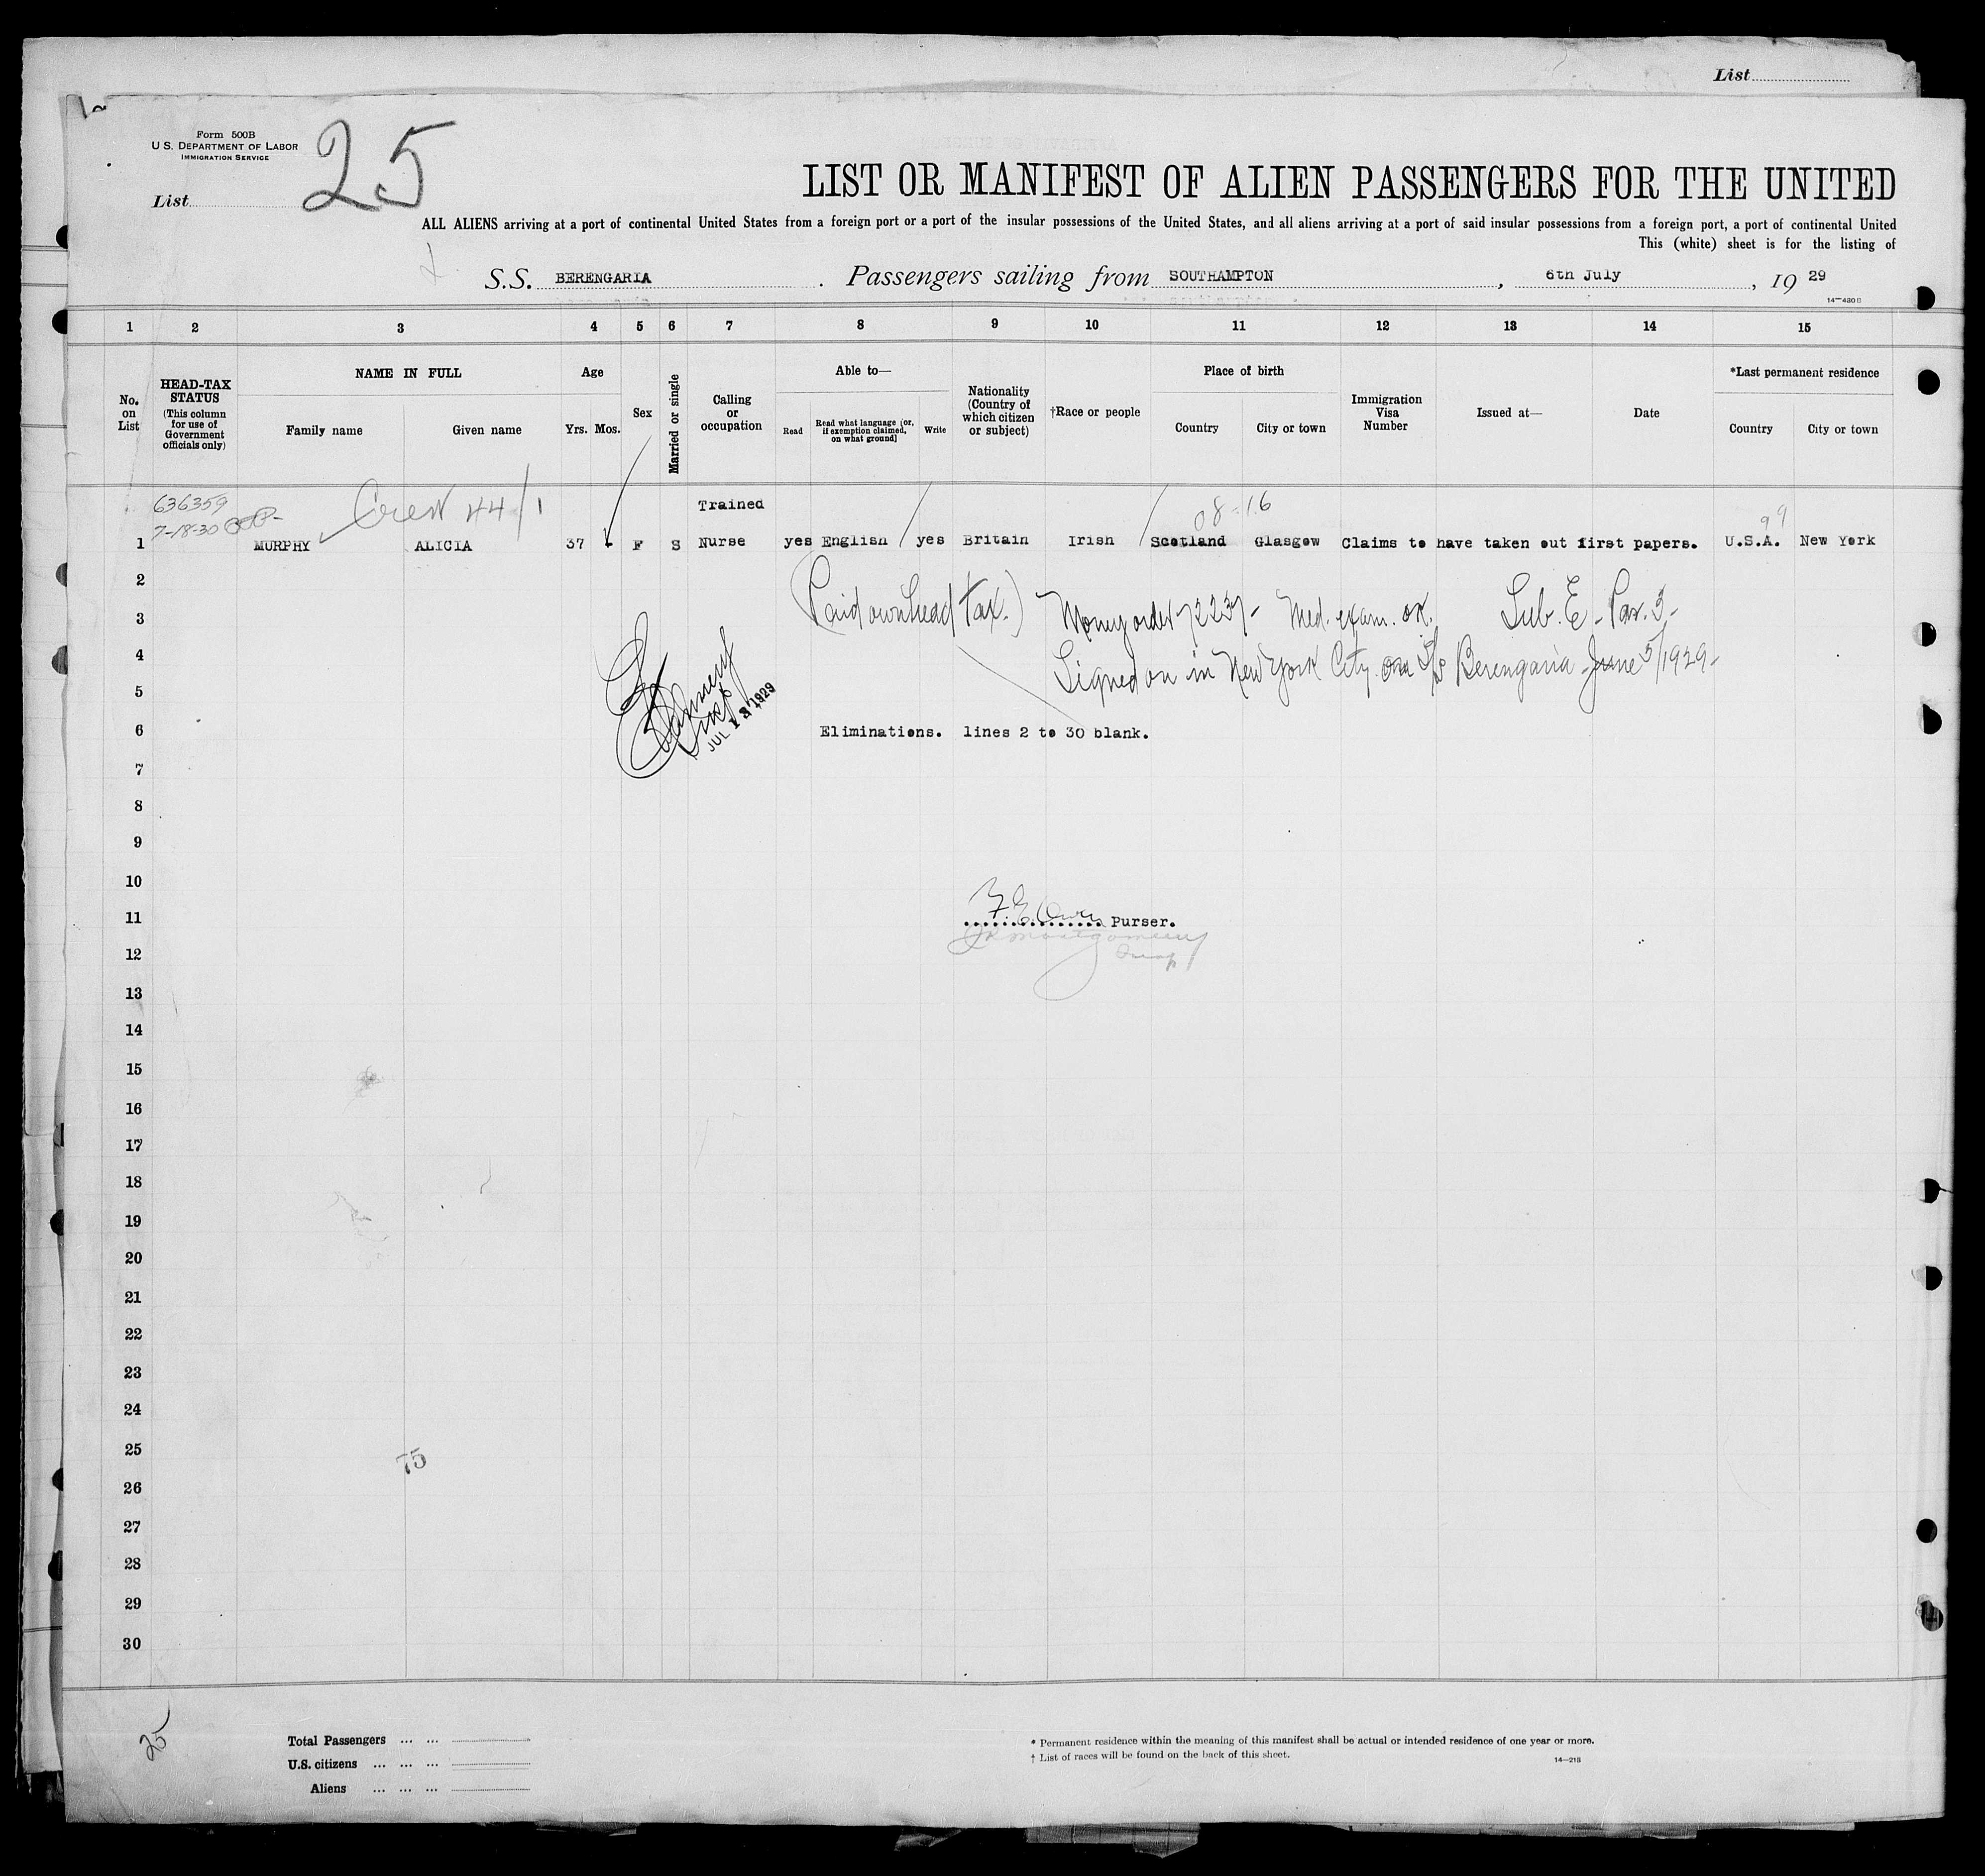 List
Form 500B
U.S. DEPARTMENT OF LABOR
IMMIGRATION SERVICE
List 25
LIST OR MANIFEST OF ALIEN PASSENGERS FOR THE UNITED
ALL ALIENS arriving at a port of continental United States from a foreign port or a port of the insular possessions of the United States, and all aliens arriving at a port of said insular possessions from a foreign port, a port of continental United
This (white) sheet is for the listing of
S.S. BERENGARIA. Passengers sailing from SOUTHAMPTON, 6th July, 19 29
14—430B
1 2 3 4 5 6 7 8 9 10 11 12 13 14 15
No. on List
HEAD-TAX STATUS (This column for use of Government officials only)
NAME IN FULL
Family name Given name
Age
Yrs. Mos.
Sex
Married or single
Calling or occupation
Able to—
Read Read what language (or, if exemption claimed, on what ground) Write
Nationality (Country of which citizen or subject)
†Race or people
Place of birth
Country City or town
Immigration Visa Number
Issued at—
Date
*Last permanent residence
Country City or town
636359 44/1 Trained 08-16 99
7-18-30
1 MURPHY ALICIA 37 - F S Nurse yes English yes Britain Irish Scotland Glasgow Claims to have taken out first papers. U.S.A. New York
2
3 (Paid own head tax.) Money order 72237- Med. exam. ok. Sub. E - Par. 3-
4 Signed on in New York City on S/S Berengaria - June 5/1929-
5 Insp JUL 12 1929
6 Eliminations. lines 2 to 30 blank.
7
8
9
10
11 Purser.
12 Montgomery Insp
13
14
15
16
17
18
19
20
21
22
23
24
25 75
26
27
28
29
30
25
Total Passengers ... ...
U.S. citizens ... ... ...
Aliens ... ... ...
* Permanent residence within the meaning of this manifest shall be actual or intended residence of one year or more.
† List of races will be found on the back of this sheet.
14—218